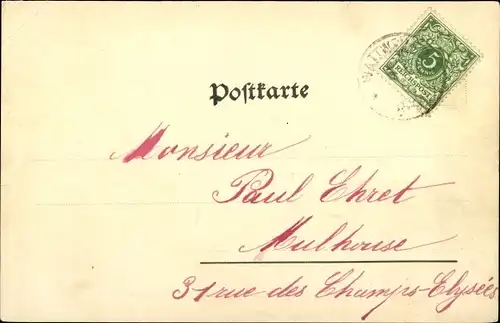 5
REICHSPOST
Postkarte
Monsieur
Paul Ehret
Mulhouse
31 rue des Champs-Elysées